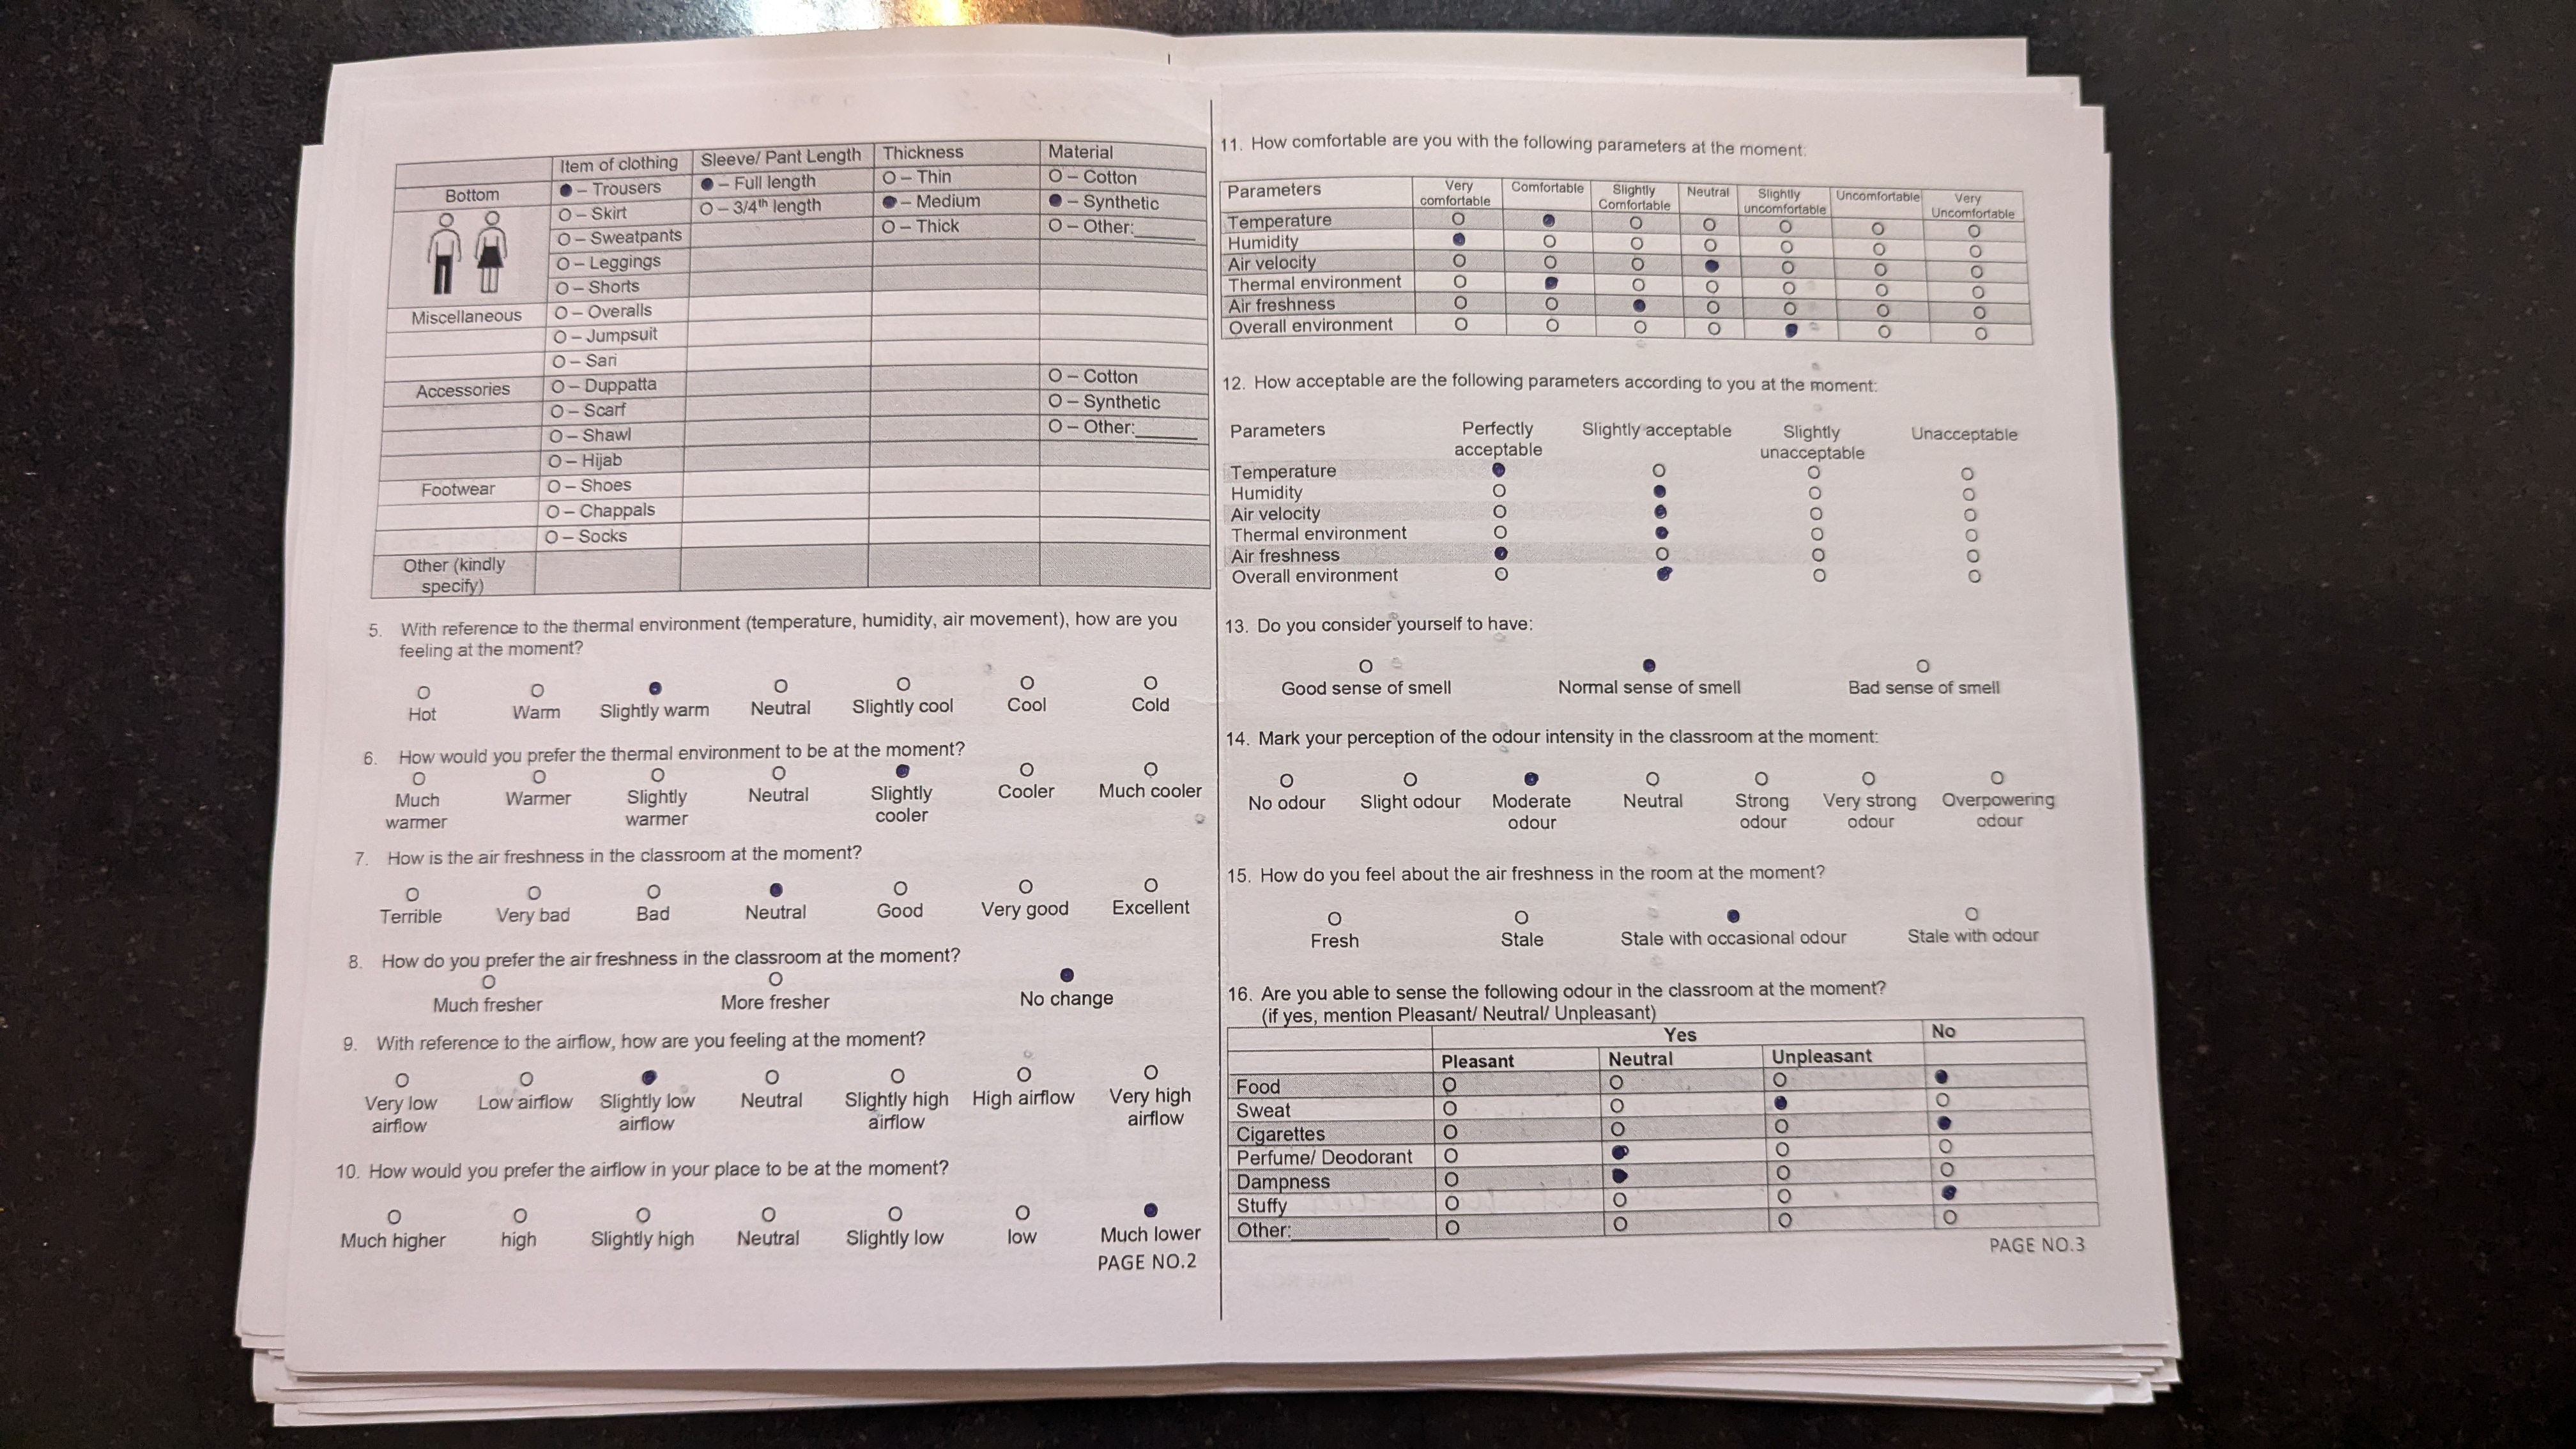 Item of clothing Sleeve/ Pant Length Thickness Material
Bottom ● – Trousers ● – Full length O – Thin O – Cotton
O – Skirt O – 3/4th length ● – Medium ● – Synthetic
O – Sweatpants O – Thick O – Other:______
O – Leggings
O – Shorts
Miscellaneous O – Overalls
O – Jumpsuit
O – Sari
Accessories O – Duppatta O – Cotton
O – Scarf O – Synthetic
O – Shawl O – Other:______
O – Hijab
Footwear O – Shoes
O – Chappals
O – Socks
Other (kindly
specify)
5. With reference to the thermal environment (temperature, humidity, air movement), how are you
feeling at the moment?
O O ● O O O O
Hot Warm Slightly warm Neutral Slightly cool Cool Cold
6. How would you prefer the thermal environment to be at the moment?
O O O O ● O O
Much Warmer Slightly Neutral Slightly Cooler Much cooler
warmer warmer cooler
7. How is the air freshness in the classroom at the moment?
O O O ● O O O
Terrible Very bad Bad Neutral Good Very good Excellent
8. How do you prefer the air freshness in the classroom at the moment?
O O ●
Much fresher More fresher No change
9. With reference to the airflow, how are you feeling at the moment?
O O ● O O O O
Very low Low airflow Slightly low Neutral Slightly high High airflow Very high
airflow airflow airflow airflow
10. How would you prefer the airflow in your place to be at the moment?
O O O O O O ●
Much higher high Slightly high Neutral Slightly low low Much lower
PAGE NO.2
11. How comfortable are you with the following parameters at the moment:
Parameters Very Comfortable Slightly Neutral Slightly Uncomfortable Very
comfortable Comfortable uncomfortable Uncomfortable
Temperature O ● O O O O O
Humidity ● O O O O O O
Air velocity O O O ● O O O
Thermal environment O ● O O O O O
Air freshness O O ● O O O O
Overall environment O O O O ● O O
12. How acceptable are the following parameters according to you at the moment:
Parameters Perfectly Slightly acceptable Slightly Unacceptable
acceptable unacceptable
Temperature ● O O O
Humidity O ● O O
Air velocity O ● O O
Thermal environment O ● O O
Air freshness ● O O O
Overall environment O ● O O
13. Do you consider yourself to have:
O ● O
Good sense of smell Normal sense of smell Bad sense of smell
14. Mark your perception of the odour intensity in the classroom at the moment:
O O ● O O O O
No odour Slight odour Moderate Neutral Strong Very strong Overpowering
odour odour odour odour
15. How do you feel about the air freshness in the room at the moment?
O O ● O
Fresh Stale Stale with occasional odour Stale with odour
16. Are you able to sense the following odour in the classroom at the moment?
(if yes, mention Pleasant/ Neutral/ Unpleasant)
Yes No
Pleasant Neutral Unpleasant
Food O O O ●
Sweat O O ● O
Cigarettes O O O ●
Perfume/ Deodorant O ● O O
Dampness O ● O O
Stuffy O O O ●
Other:__________ O O O O
PAGE NO.3